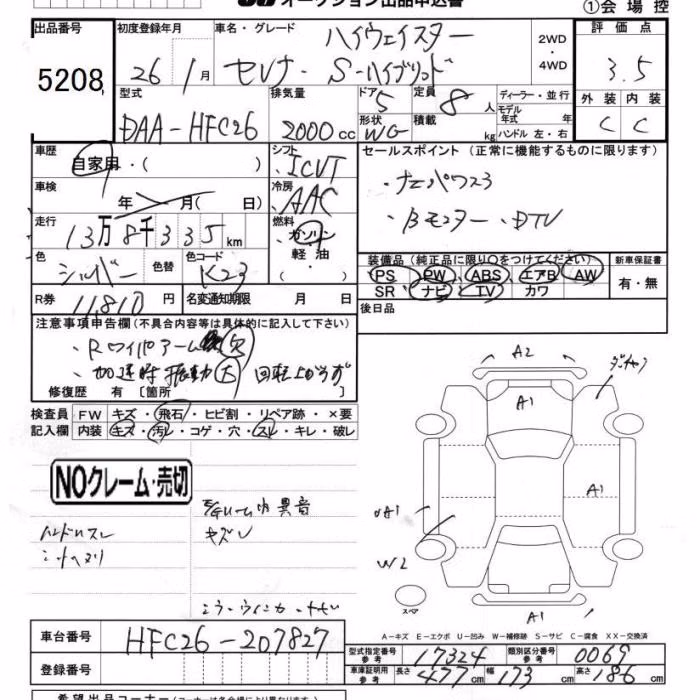 オークション出品申込書
①会場控
出品番号 初度登録年月 車名・グレード 評価点
5208 26年 1月 セレナ・ハイウェイスター S-ハイブリッド 2WD・4WD 3.5
型式 排気量 ドア 定員 ディーラー・並行 外装 内装
DAA-HFC26 2000cc 5 8人 モデル年式 年 C C
形状 WG 積載 kg ハンドル 左・右
車歴 シフト セールスポイント (正常に機能するものに限ります)
自家用・( ) ICVT
車検 冷房
年 月( 日) AAC
走行 燃料 ・Bモニター・DTV
13万8千335km ガソリン
軽油
色 色替 色コード 装備品(純正品に限り○をつけてください) 新車保証書
シルバー K23 PS PW ABS エアB AW 有・無
SR ナビ TV カワ
R券 11,810円 名変通知期限 月 日 後日品
注意事項申告欄(不具合内容等は具体的に記入して下さい)
・Rワイパーアーム欠
・加速時振動大 回転上がらず
修復歴 有 [箇所 ]
検査員 FW キズ・飛石・ヒビ割・リペア跡・×要
記入欄 内装 キズ・汚レ・コゲ・穴・スレ・キレ・破レ
A2
A1
A1
A1
W2
A1
スペア
NOクレーム・売切
ハンドルスレ
異音
キズレ
A-キズ E-エクボ U-凹み W-補修跡 S-サビ C-腐食 XX-交換済
車台番号 HFC26-207827
登録番号
型式指定番号 参考 17324 類別区分番号 参考 0069
車庫証明用 参考 長さ 477cm 幅 173cm 高さ 186cm
希望出品コーナー